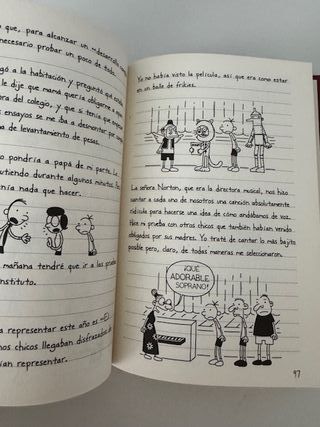 o que, para alcanzar un "desarrollo
necesario probar un poco de todo.
gó a la habitación y preguntó qué
le dije que mamá quería obligarme a
ra del colegio, y que si tenía que
ensayos se me iba a desmontar por
a de levantamiento de pesas.
pondría a papá de mi parte. Le
utiendo durante algunos minutos.
nía nada que hacer.
mañana tendré que ir a las
nstituto.
a representar este año es
nos chicos llegaban disfrazados de
ían representar.
Yo no había visto la película, así que era como estar
en un baile de frikies.
La señora Norton, que era la directora musical, nos hizo
cantar a cada uno de nosotros una canción absolutamente
ridícula para hacerse una idea de cómo andábamos de voz.
Hice mi prueba con otros chicos que también habían venido
obligados por sus madres. Yo traté de cantar lo más bajito
posible pero, claro, de todas maneras me seleccionaron.
¡QUÉ
ADORABLE
SOPRANO!
97